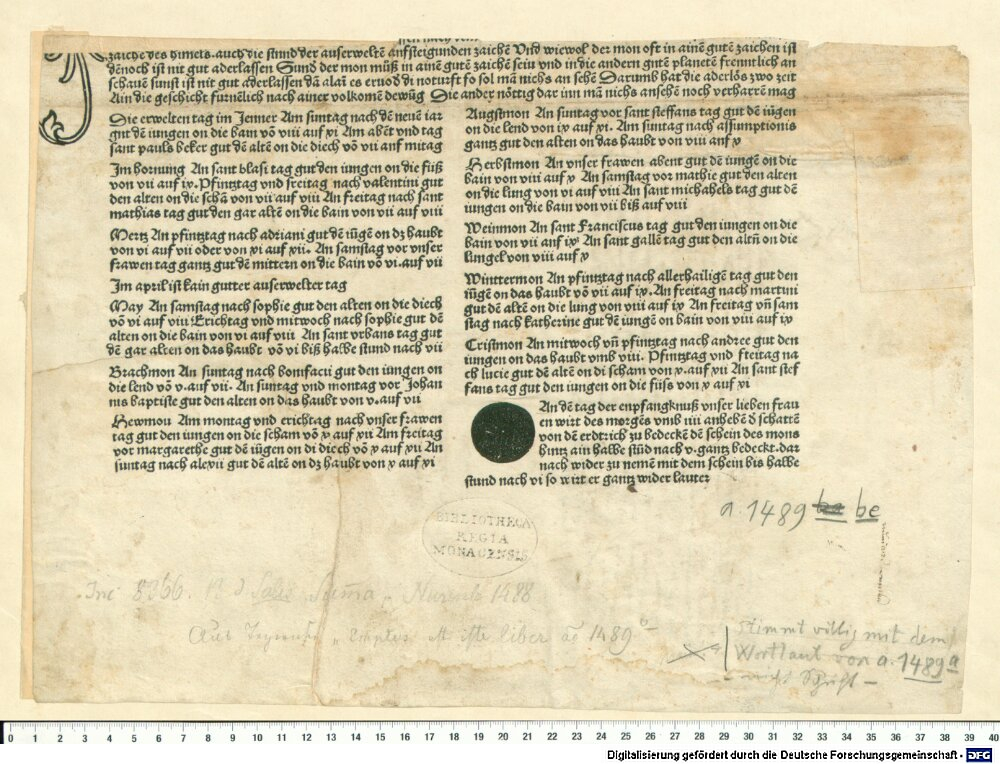 zaiche des himels. auch die stund der auserweltē aufsteigunden zaichē Vnd wiewol der mon oft in ainē gutē zaichen ist
dēnoch ist nit gut aderlassen Sund der mon müß in ainē gutē zaichē sein vnd in die andern gutē planetē freuntlich an
schauē sunst ist nit gut aderlassen dā alai es eruod di noturft so sol mā nichs an sehē Darumb hat die aderlös zwo zeit
Ain die geschicht furnēlich nach ainer volkomē bewūg Die ander nöttig dar inn mā nichs ansehē noch verharrē mag
Die erwelten tag im Jenner Am suntag nach dē neuē iar
gut dē iungen on die bain vō viii auf xi Am abēt vnd tag
sant pauls beker gut dē altē on die diech vō vii auf mitag
Im hornung An sant blasi tag gut den iungen on die füß
von vii auf ix. Pfintztag vnd freitag nach valentini gut
den alten on die schā von vii auf viii An freitag nach sant
mathias tag gut den gar altē on die bain von vii auf viii
Mertz An pfintztag nach adriani gut dē iūgē on dz haubt
von vi auf vii oder von xi auf xii. An samstag vor vnser
frawen tag gantz gut dē mittern on die bain vō vi. auf vii
Im april ist kain gutter auserwelter tag
May An samstag nach sophie gut den alten on die diech
vō vi auf viii Erichtag vnd mitwoch nach sophie gut dē
alten on die bain von vi auf viii An sant vrbans tag gut
dē gar alten on das haubt vō vi biß halbe stund nach vii
Brachmon An suntag nach bonifacii gut den iungen on
die lend vō v. auf vii. An suntag vnd montag vor Johan
nis baptiste gut den alten on das haubt von v. auf vii
Hewmou Am montag vnd erichtag nach vnser frawen
tag gut den iungen on die scham vō x auf xii Am freitag
vor margarethe gut dē iūgen on di diech vō x auf xii An
suntag nach alexii gut dē altē on dz haubt von x auf xi
Augstmon An suntag vor sant steffans tag gut dē iūgen
on die lend von ix auf xi. Am suntag nach assumptionis
gantz gut den alten on das haubt von viii auf x
Herbstmon An vnser frawen abent gut dē iungē on die
bain von viii auf x An samstag vor mathie gut den alten
on die lung von vi auf viii An sant michahels tag gut dē
iungen on die bain von vii biß auf viii
Weinmon An sant Franciscus tag gut den iungen on die
bain von vii auf ix An sant gallē tag gut den altn̄ on die
lungel von viii auf x
Winttermon An pfintztag nach allerhailigē tag gut den
iūgē on das haubt vō vii auf ix. An freitag nach martini
gut dē altē on die lung von viii auf ix An freitag vn̄ sam
stag nach katherine gut dē iungē on bain von viii auf ix
Cristmon An mitwoch vn̄ pfintztag nach andree gut den
iungen on das haubt vmb viii. Pfintztag vnd freitag na
ch lucie gut dē altēn on di scham von x. auf xii An sant stef
fans tag gut den iungen on die füss von x auf xi
An dē tag der enpfangknuß vnser lieben frau
en wirt des morgēs vmb iiii anhebē d schattē
von dē erdtrich zu bedeckē dē schein des mons
hintz ain halbe stūd nach v. gantz bedeckt. dar
nach wider zu nemē mit dem schein bis halbe
stund nach vi so wirt er gantz wider lauter
a. 1489 be
BIBLIOTHECA
REGIA
MONACENSIS
Inc 8366. Suma Nuremb 1488
liber 1489
Stimmt völlig mit dem
Wortlaut von a. 1489a
– nicht Schrift –
0 1 2 3 4 5 6 7 8 9 10 11 12 13 14 15 16 17 18 19 20 21 22 23 24 25 26 27 28 29 30 31 32 33 34 35 36 37 38 39 40
Digitalisierung gefördert durch die Deutsche Forschungsgemeinschaft - DFG